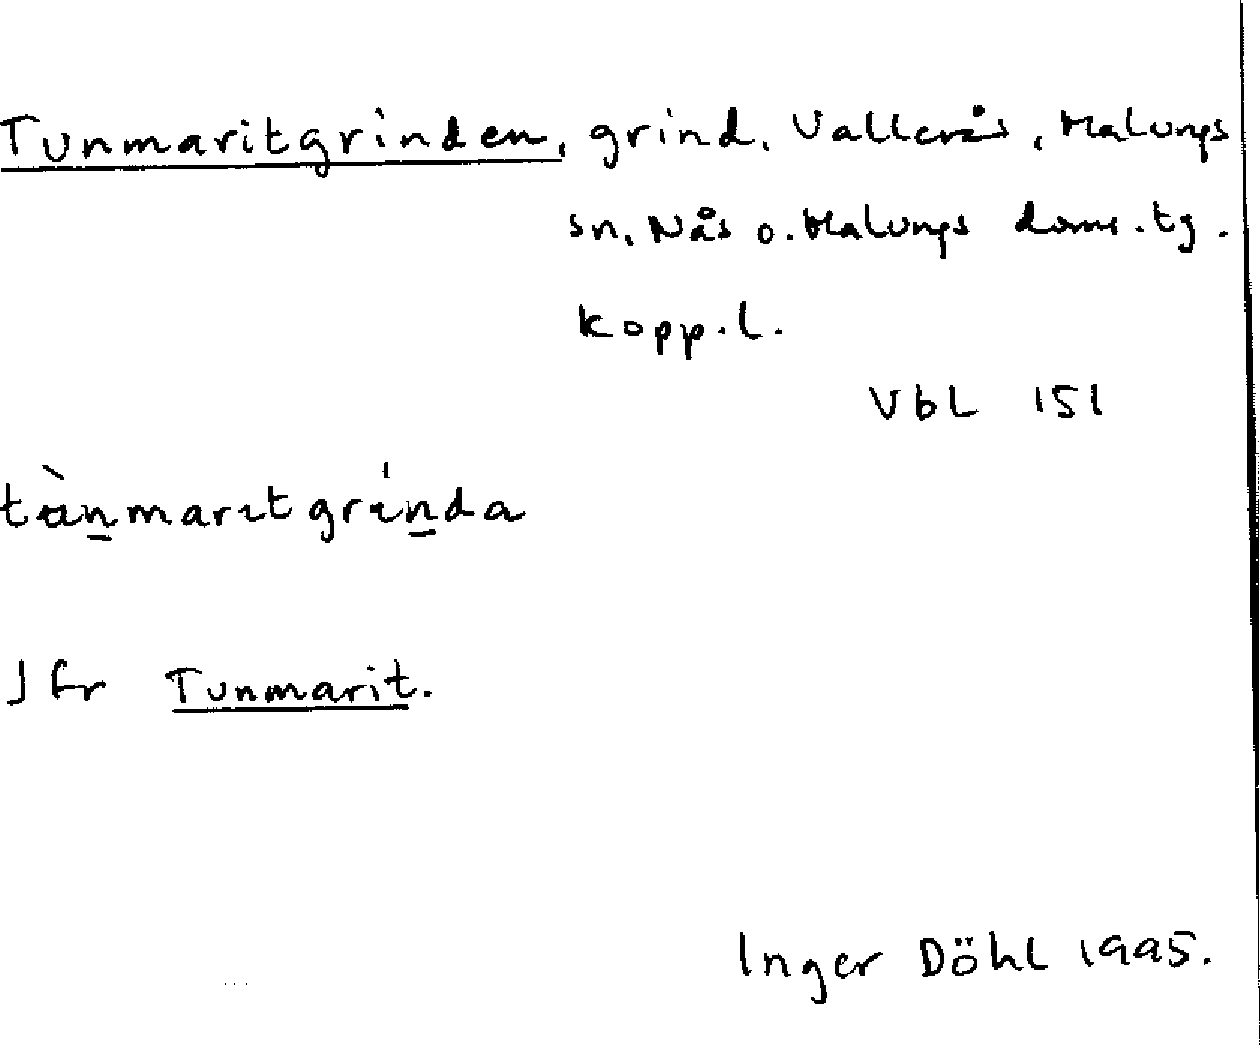 Tunmaritgrinden, grind, Vallerås, Malungs
sn, Nås o. Malungs doms.tg.
Kopp.l.
VbL 151
tùn̲marɪtgrɪ́n̲da
Jfr Tunmarit.
Inger Döhl 1995.